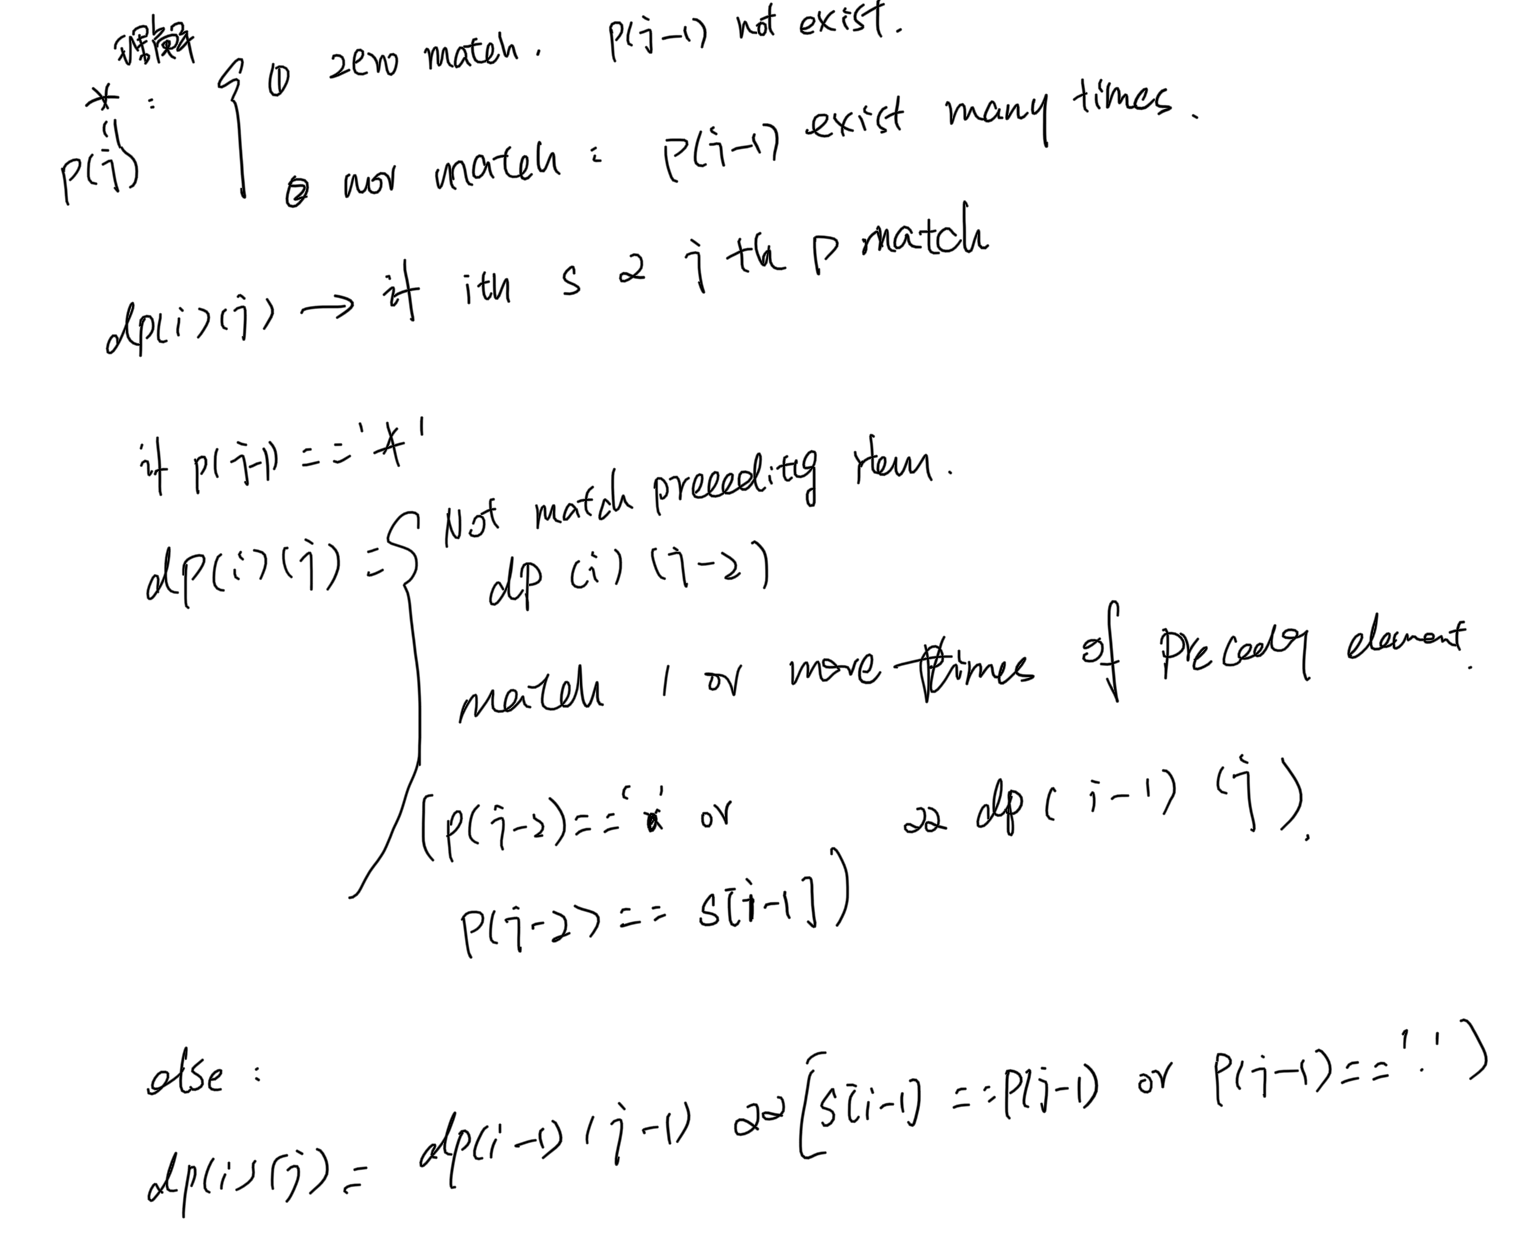 理解
* : ① zero match. P(j-1) not exist.
"
P(j)
② mor match : P(j-1) exist many times.
dp(i)(j) → if ith s & j th p match
if p(j-1) == '*'
dp(i)(j) = Not match preceeditg item.
dp (i) (j-2)
match 1 or more times of preceding element.
(P(j-2) == ' ' or && dp(i-1)(j).
P(j-2) == s[i-1])
else :
dp(i)(j) = dp(i-1)(j-1) && [s[i-1] == P(j-1) or P(j-1) == '.')